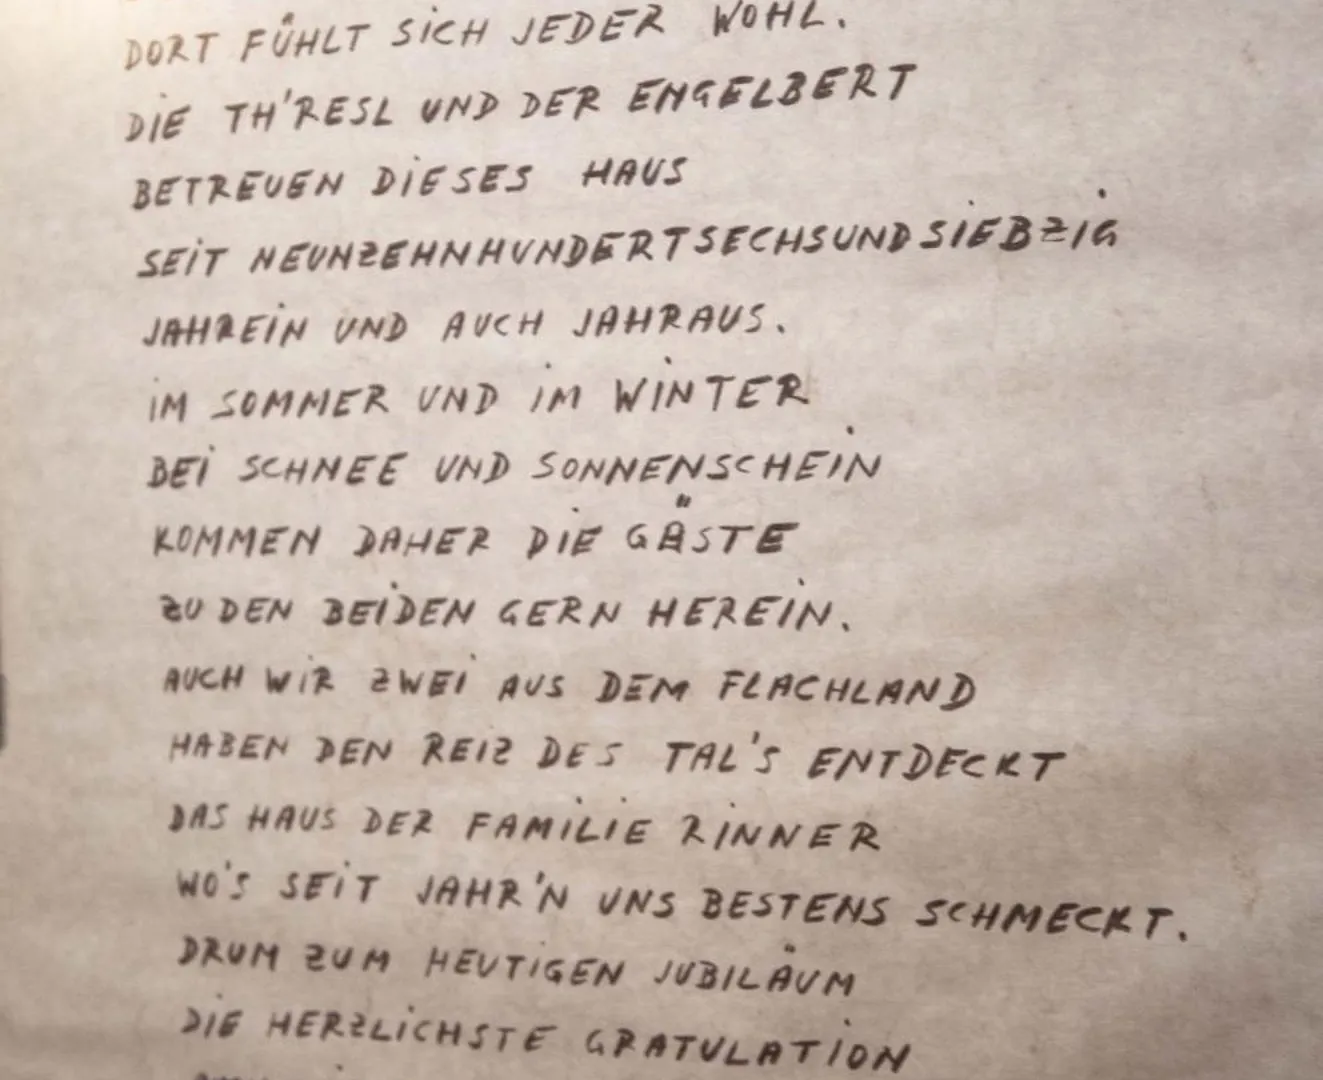 DORT FÜHLT SICH JEDER WOHL.
DIE TH'RESL UND DER ENGELBERT
BETREUEN DIESES HAUS
SEIT NEUNZEHNHUNDERTSECHSUNDSIEBZIG
JAHREIN UND AUCH JAHRAUS.
IM SOMMER UND IM WINTER
BEI SCHNEE UND SONNENSCHEIN
KOMMEN DAHER DIE GÄSTE
ZU DEN BEIDEN GERN HEREIN.
AUCH WIR ZWEI AUS DEM FLACHLAND
HABEN DEN REIZ DES TAL'S ENTDECKT
DAS HAUS DER FAMILIE RINNER
WO'S SEIT JAHR'N UNS BESTENS SCHMECKT.
DRUM ZUM HEUTIGEN JUBILÄUM
DIE HERZLICHSTE GRATULATION